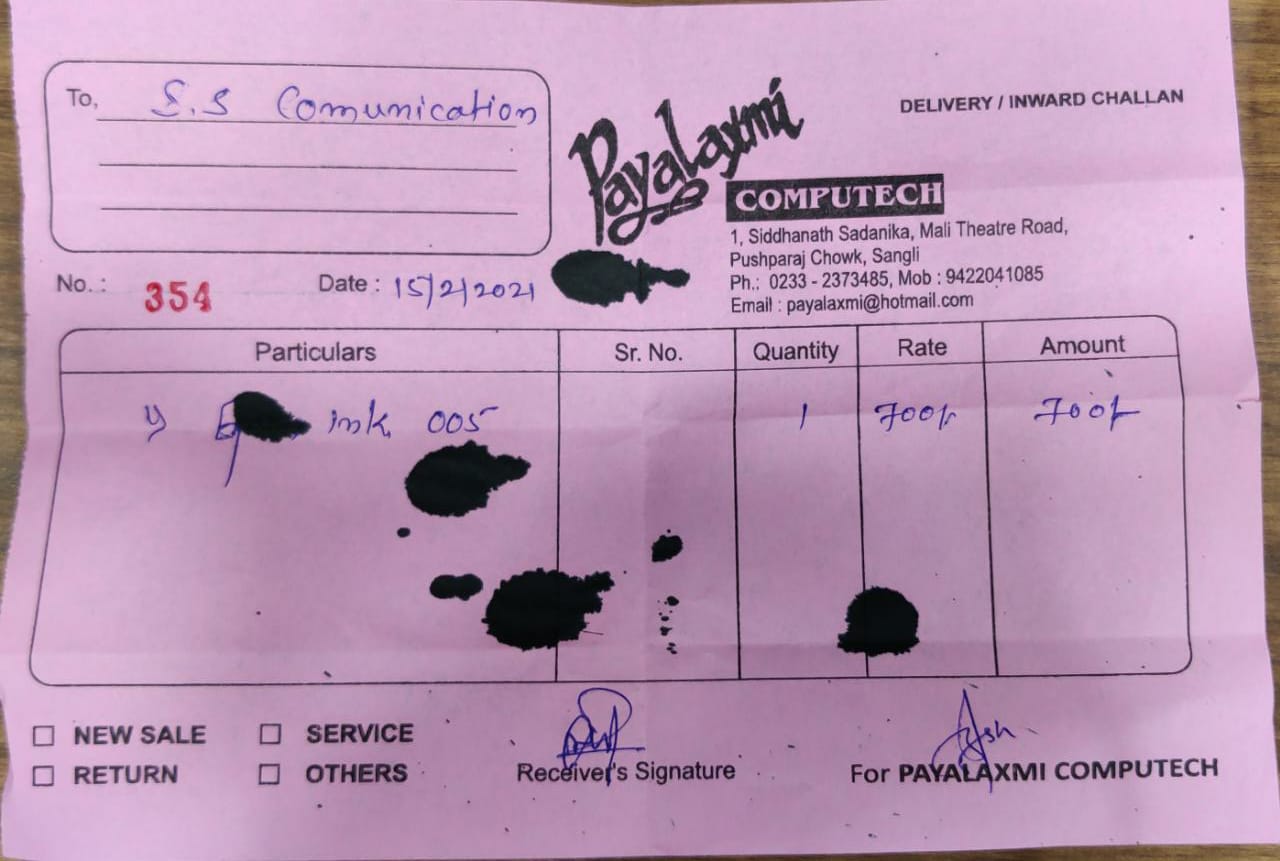 To, S.S Comunication
DELIVERY / INWARD CHALLAN
Payalaxmi
COMPUTECH
1, Siddhanath Sadanika, Mali Theatre Road,
Pushparaj Chowk, Sangli
Ph.: 0233 - 2373485, Mob : 9422041085
Email : payalaxmi@hotmail.com
No. : 354 Date : 15/2/2021
Particulars Sr. No. Quantity Rate Amount
ink 005 1 700/- 700/-
NEW SALE SERVICE
RETURN OTHERS
Receiver's Signature
For PAYALAXMI COMPUTECH